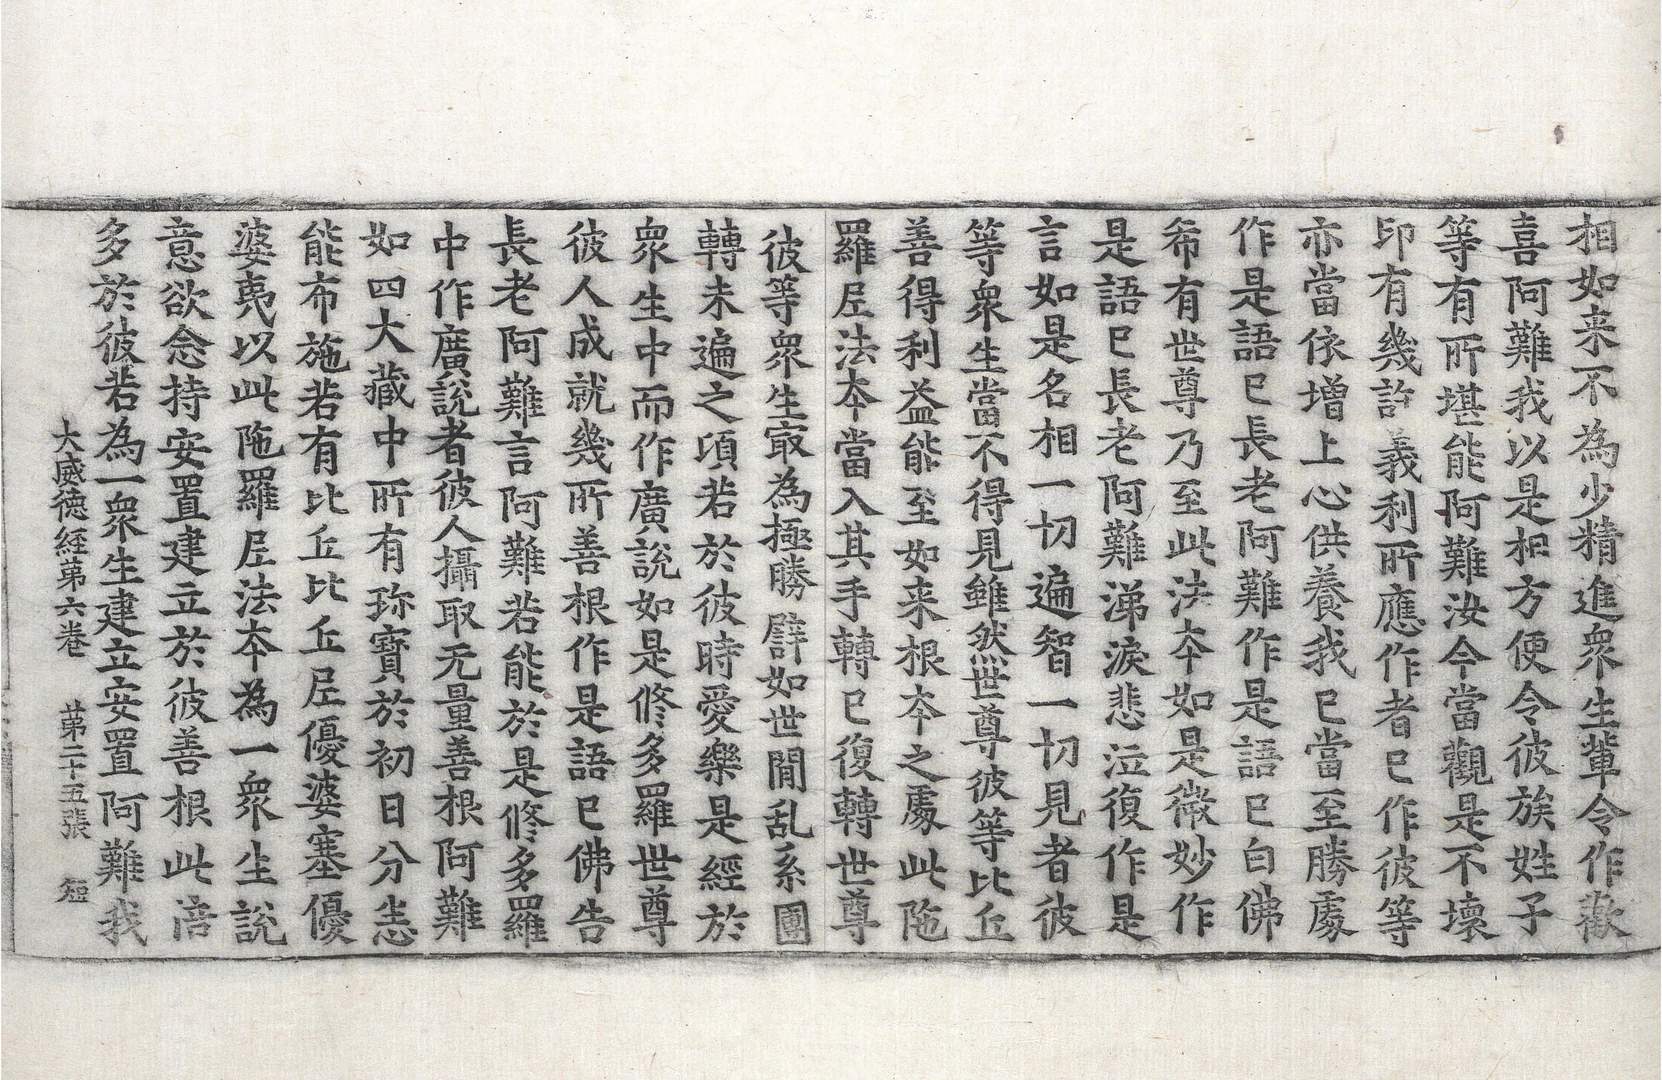 相如来不為少精進衆生輩令作歡
喜阿難我以是相方便令彼族姓子
等有所堪能阿難汝今當觀是不壞
印有幾許義利所應作者已作彼等
亦當依增上心供養我已當至勝處
作是語已長老阿難作是語已白佛
希有世尊乃至此法夲如是微妙作
是語已長老阿難涕淚悲泣復作是
言如是名相一切遍智一切見者彼
等衆生當不得見雖然世尊彼等比丘
善得利益能至如来根夲之處此陁
羅尼法夲當入其手轉已復轉世尊
彼等衆生㝡為極勝譬如世間乱系團
轉未遍之頃若於彼時愛樂是經於
衆生中而作廣說如是修多羅世尊
彼人成就幾所善根作是語已佛告
長老阿難言阿難若能於是修多羅
中作廣說者彼人攝取无量善根阿難
如四大藏中所有珎寶於初日分恚
能布施若有比丘比丘尼優婆塞優
婆夷以此陁羅尼法夲為一衆生說
意欲念持安置建立於彼善根此倍
多於彼若為一衆生建立安置阿難我
大威德經第六卷 第二十五張 短